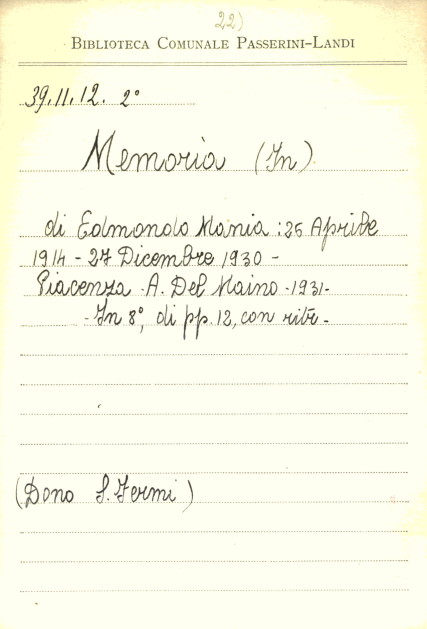 22)
BIBLIOTECA COMUNALE PASSERINI-LANDI
39.11.12. 2°
Memoria (In)
di Edmondo Mania : 26 Aprile
1914 - 27 Dicembre 1930 -
Piacenza - A. Del Maino - 1931 -
- In 8°, di pp. 12, con ritr. -
(Dono S. Fermi)